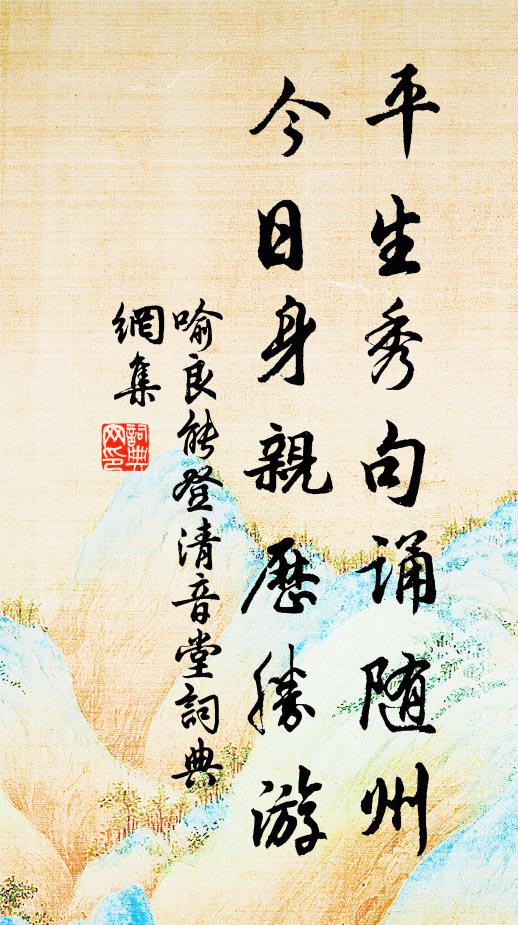 平生秀句诵随州
今日身親歷勝游
喻良能登清音堂詞典
網集
詞典
网印